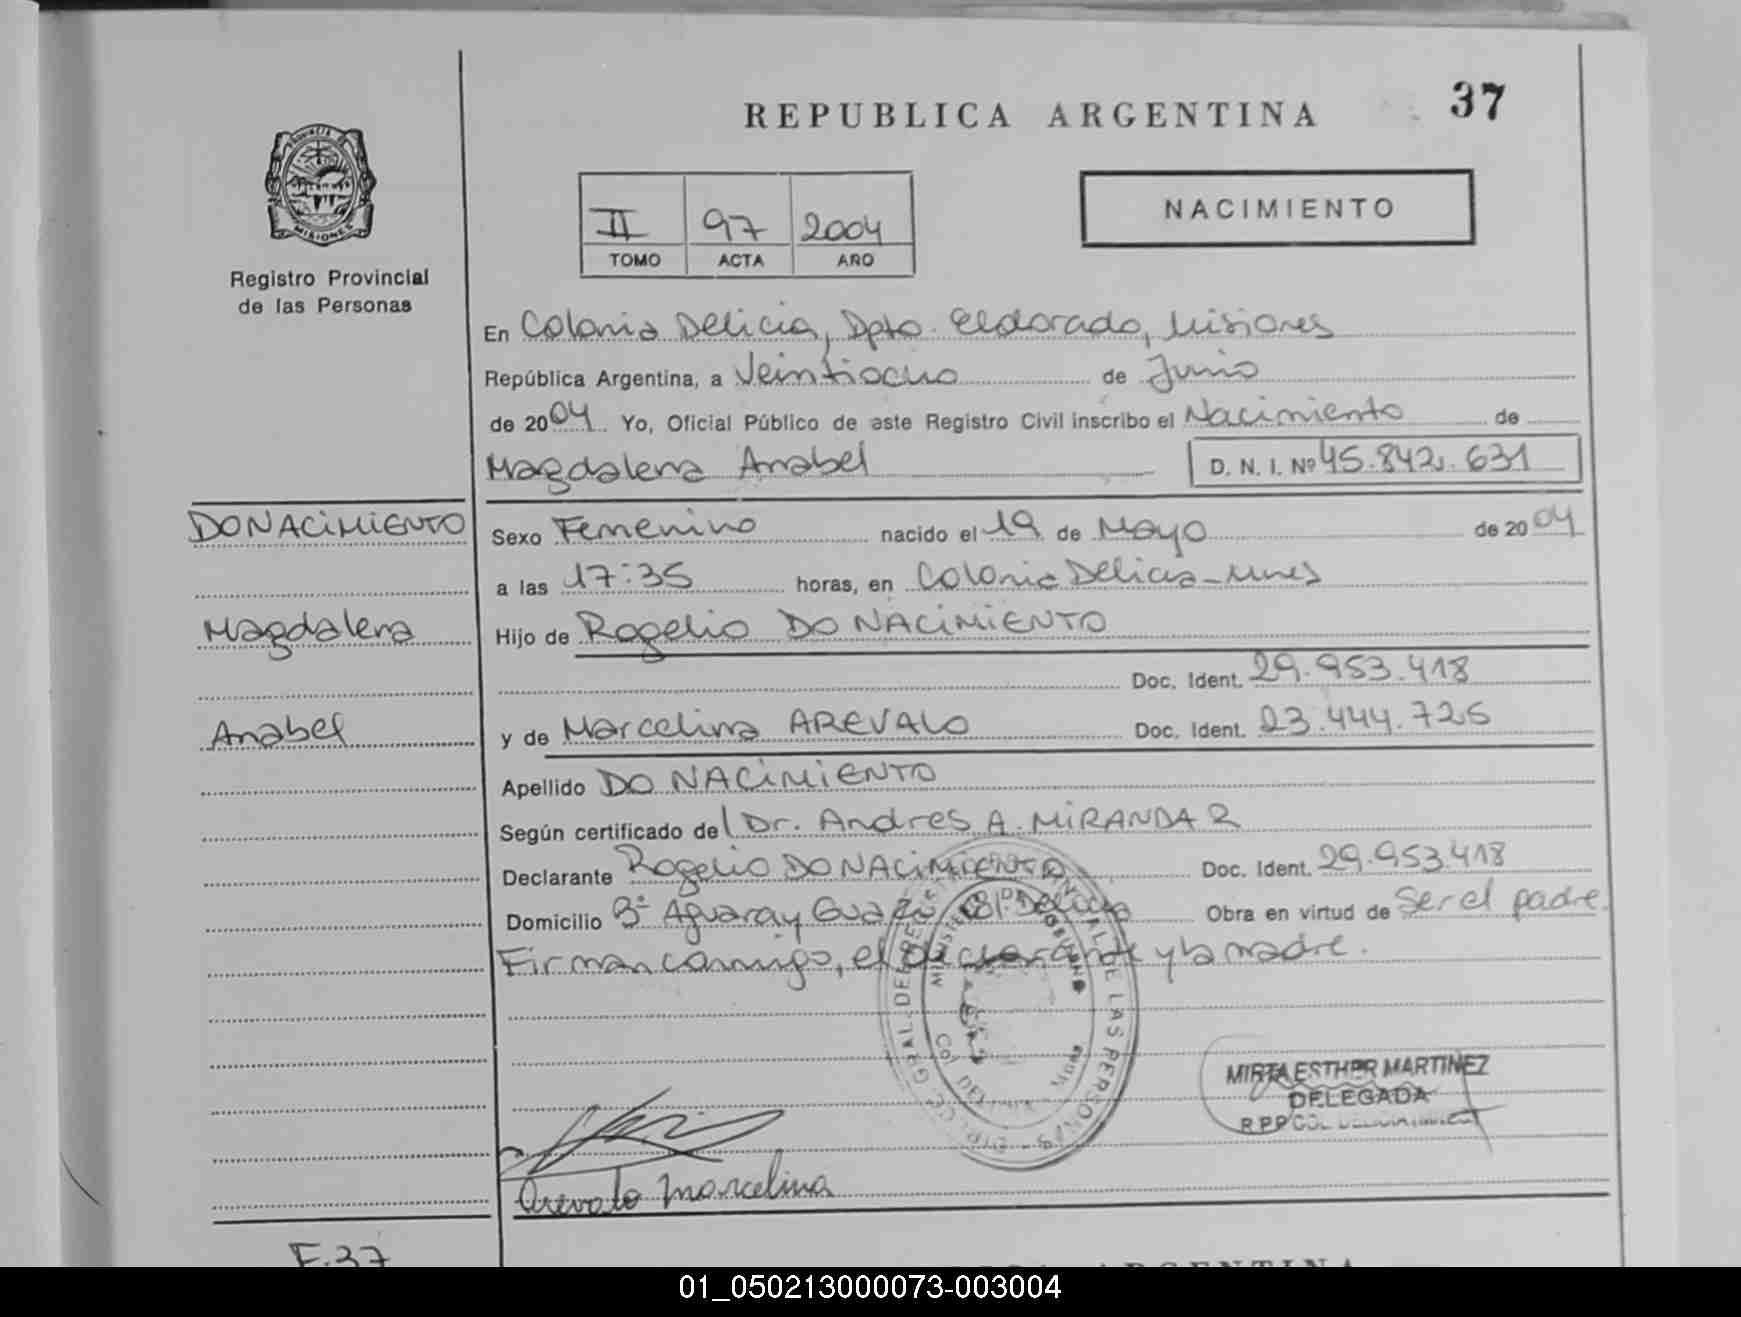 REPUBLICA ARGENTINA
37
PROVINCIA
MISIONES
Registro Provincial
de las Personas
II 97 2004
TOMO ACTA AÑO
NACIMIENTO
En Colonia Delicia, Dpto. Eldorado, Misiones
República Argentina, a Veintiocho de Junio
de 2004 Yo, Oficial Público de este Registro Civil inscribo el Nacimiento de
Magdalena Anabel D. N. I. Nº 45.842.631
DO NACIMIENTO
Magdalena
Anabel
Sexo Femenino nacido el 19 de Mayo de 2004
a las 17:35 horas, en Colonia Delicia - Mnes
Hijo de Rogelio DO NACIMIENTO
Doc. Ident. 29.953.418
y de Marcelina AREVALO Doc. Ident. 23.444.725
Apellido DO NACIMIENTO
Según certificado del Dr. Andres A. MIRANDA R
Declarante Rogelio DO NACIMIENTO Doc. Ident. 29.953.418
Domicilio Bº Aguaray Guazú Col. Delicia Obra en virtud de Ser el padre.
Firman conmigo, el declarante y la madre.
DE LAS PERSONAS
MIRTA ESTHER MARTINEZ
DELEGADA
Arevalo Marcelina
F.37
ARGENTINA
01_050213000073-003004